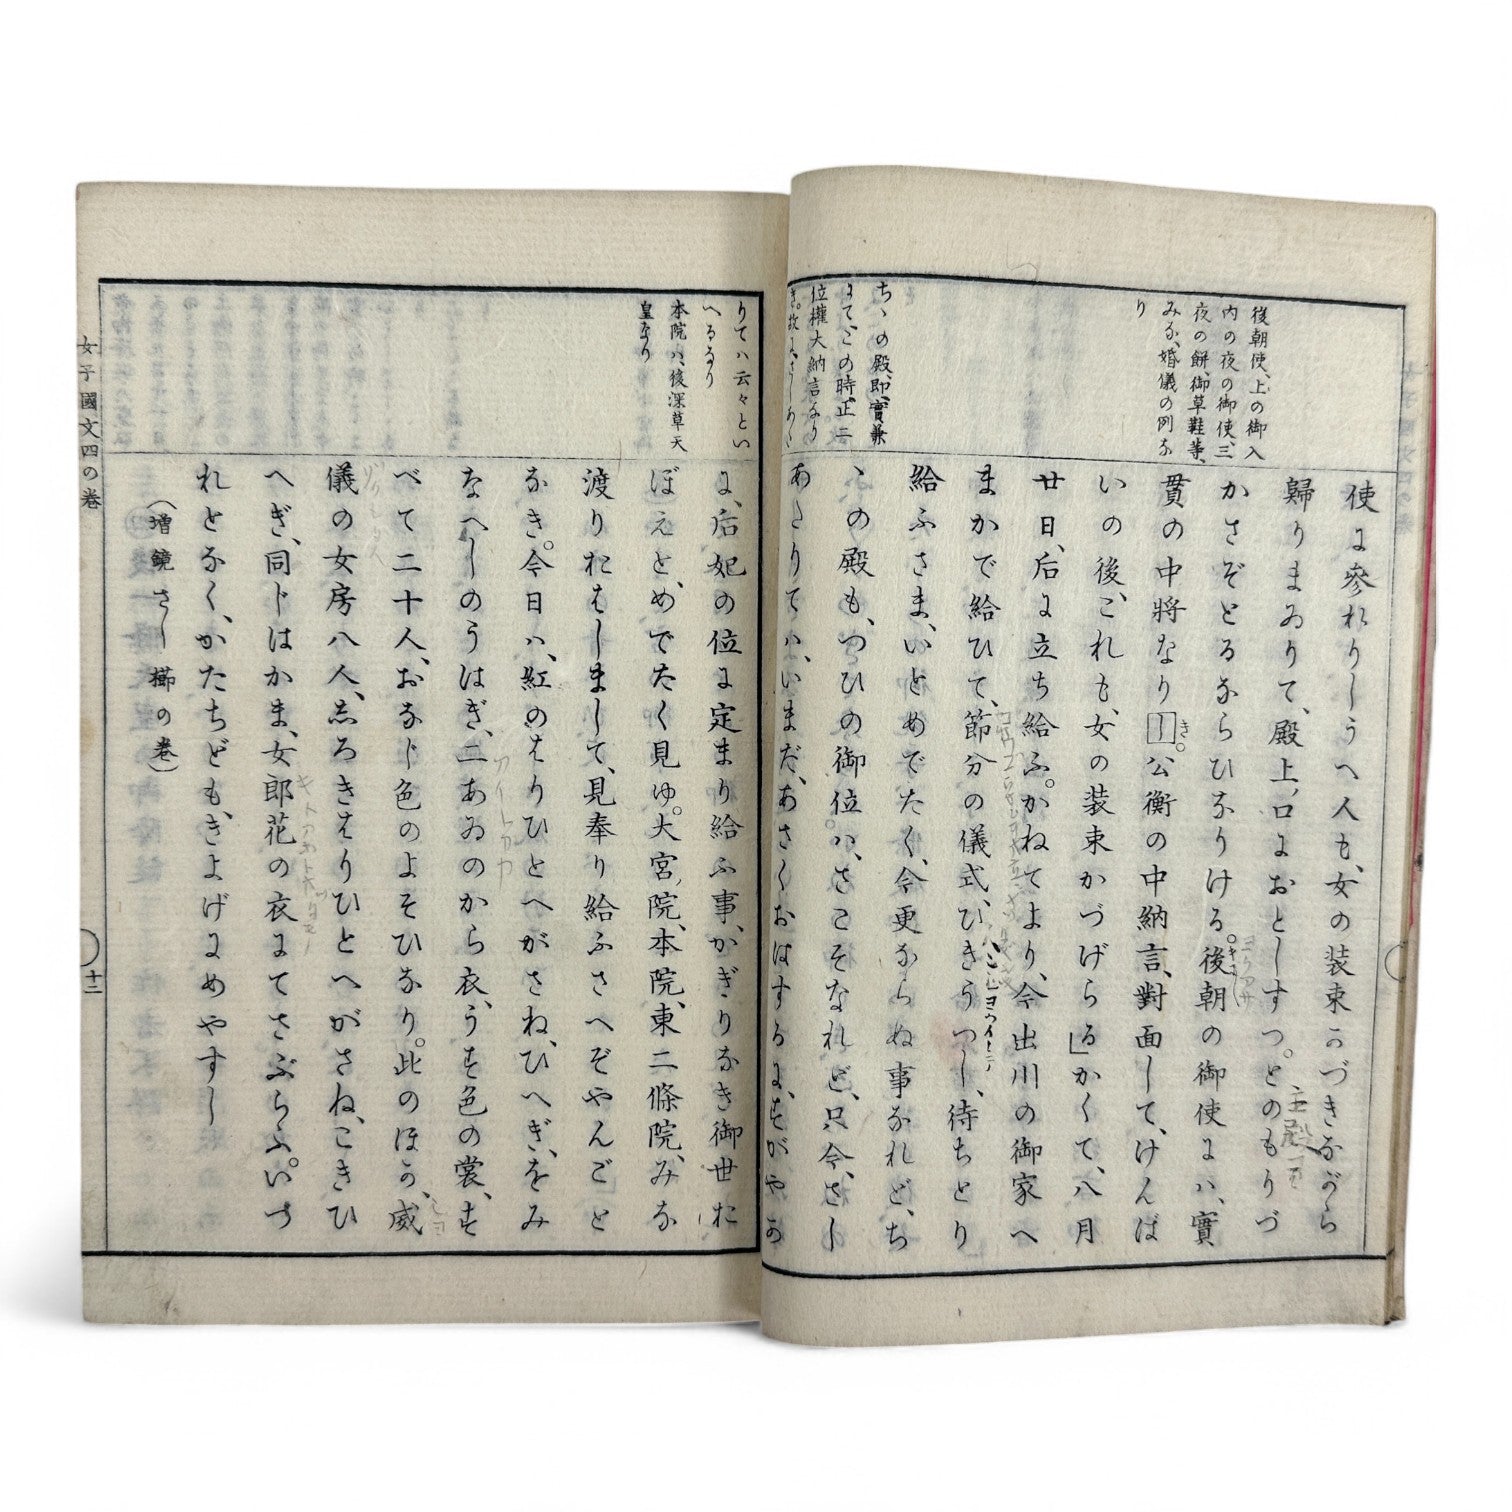 後朝使、上の御入
内の夜の御使、三
夜の餅、御草鞋等、
みな、婚儀の例な
り
ちゝの殿、即、實兼
にて、この時、正二
位權大納言なり
使に參れりしうへ人も、女の装束かづきながら
歸りまゐりて、殿上口におとしすつ。とのもりづ
かさぞとるならひなりける。後朝の御使には、實
貫の中將なり
き。公衡の中納言、對面して、けんば
いの後、これも、女の装束かづけらる」かくて、八月
廿日、后に立ち給ふ。かねてより、今出川の御家へ
まかで給ひて、節分の儀式、ひきうつし、待ちとり
給ふさま、いとめでたく、今更ならぬ事なれど、ち
ゝの殿も、つひの御位は、さこそなれど、只今、さし
あたりては、いまだ、あさくおはするに、すがやか
りては云々とい
へるなり
本院は、後深草天
皇なり
に、后妃の位に定まり給ふ事、かぎりなき御世お
ぼえと、めでたく見ゆ。大宮院、本院、東二條院、みな
渡りおはしまして、見奉り給ふさへぞやんごと
なき。今日は、紅のはりひとへがさね、ひへぎ、をみ
なへしのうはぎ、二あゐのから衣、うす色の裳、す
べて二十人、おなじ色のよそひなり。此のほか、威
儀の女房八人、しろきはりひとへがさね、こきひ
へぎ、同じはかま、女郎花の衣にてさぶらふ。いづ
れとなく、かたちども、きよげにめやすし
(増鏡さし櫛の巻)
女子國文四の巻
十二